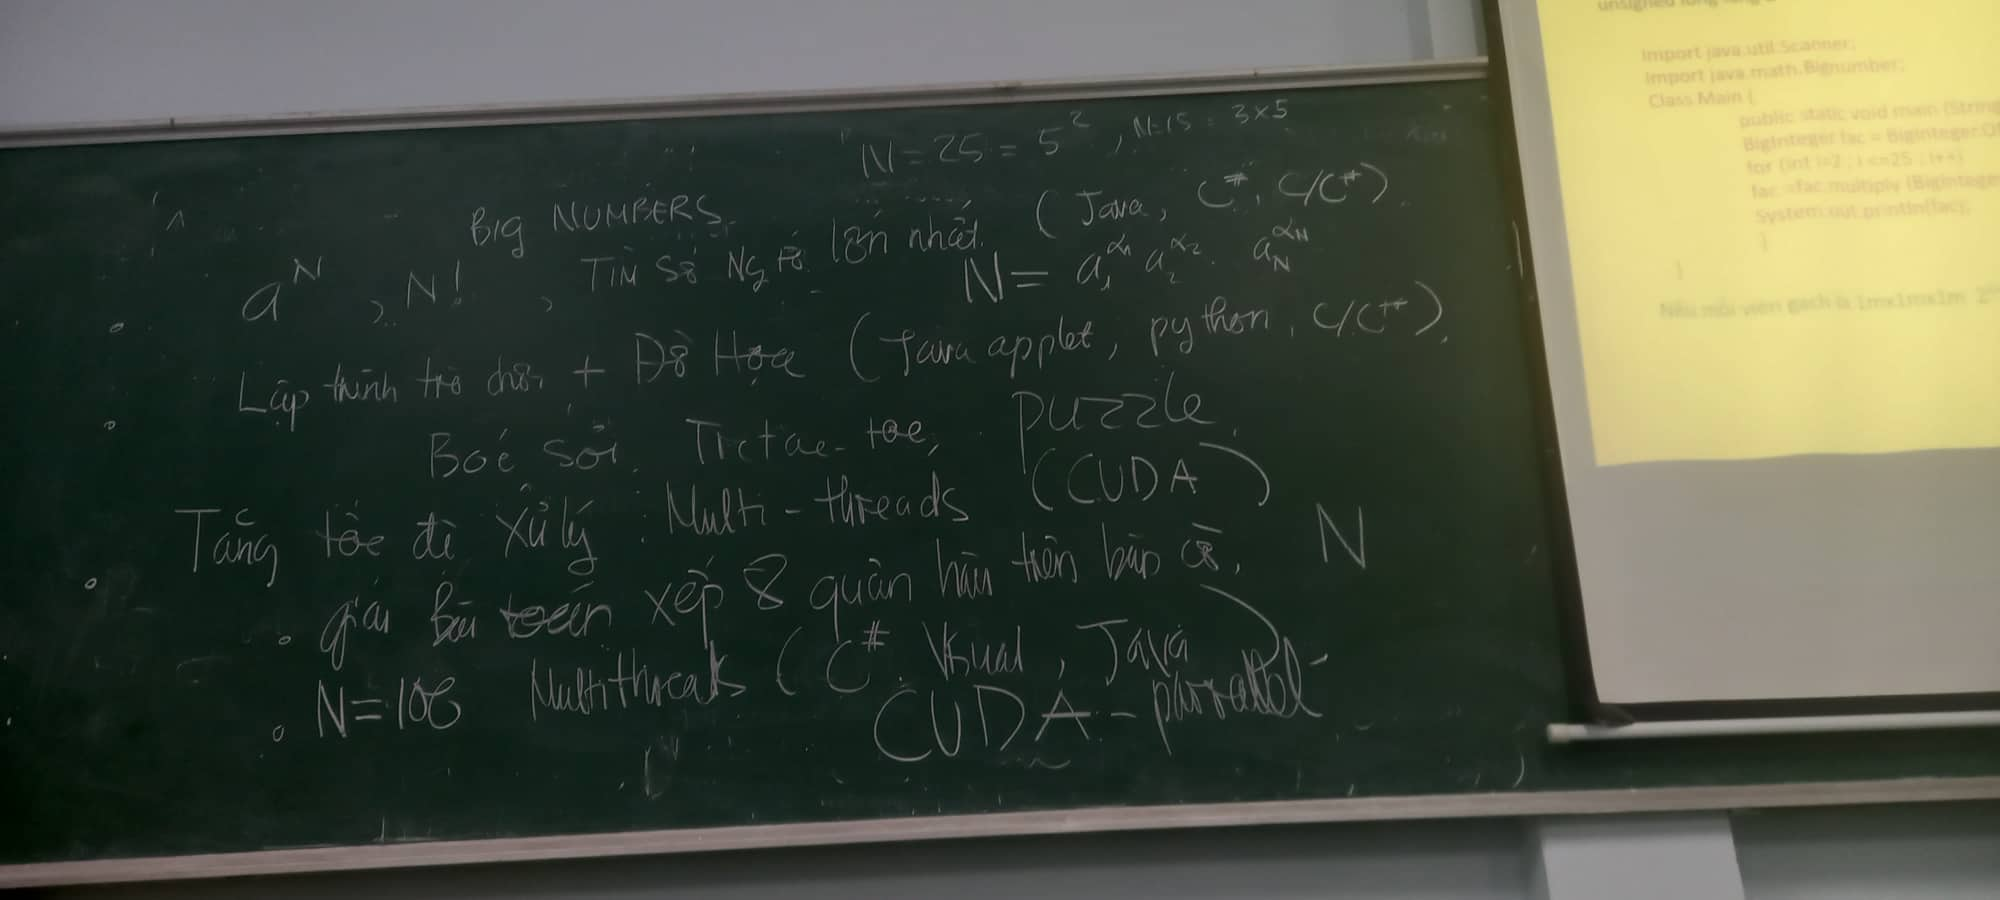 N = 25 = 5², N=15 = 3×5
BIG NUMBERS.
a^N, N!, Tìm số Ng tố lớn nhất. (Java, C#, C/C++).
N = a₁^α₁ a₂^α₂ . a_N^α_N
Lập trình trò chơi + Đồ Họa (Java applet, python, C/C++),
Bốc sỏi. Tictac-toe, puzzle.
Tăng tốc độ xử lý : Multi-threads (CUDA)
giải bài toán xếp 8 quân hậu trên bàn cờ, N
N=108 Multithreads (C#. Visual, Java
CUDA - parrallel
unsigned long long
Import java.util.Scanner;
Import java.math.Bignumber;
Class Main {
public static void main (String
BigInteger fac = BigInteger.Of
for (int i=2 ; i <=25 ; i++)
fac =fac.multiply (BigIntege
System.out.println(fac);
}
}
Nếu mỗi viên gạch là 1mx1mx1m